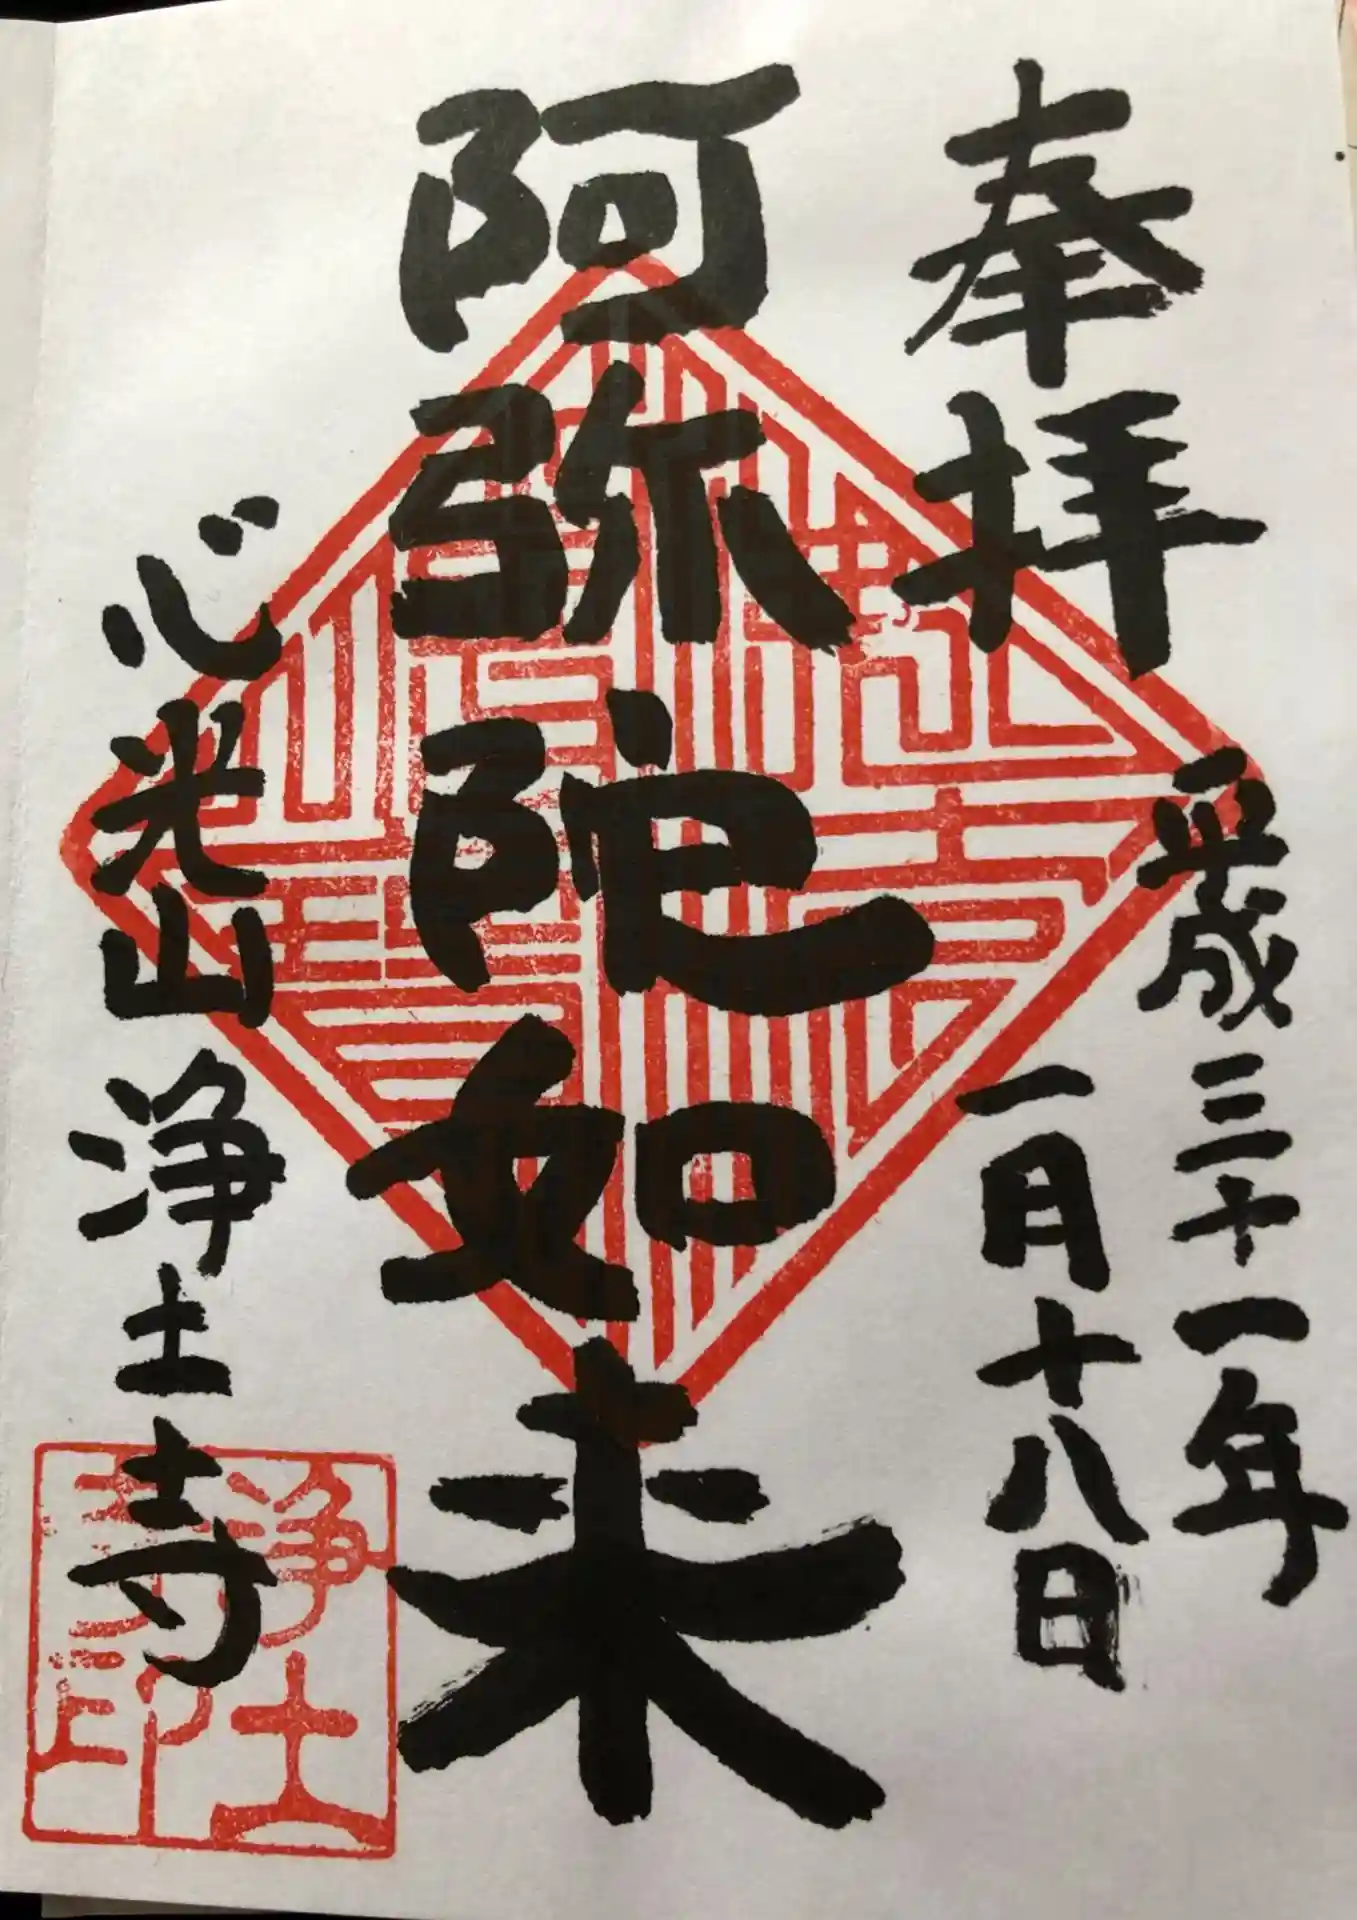 奉拝
平成三十一年
一月十八日
阿弥陀如来
心光山 浄土寺
浄土寺印